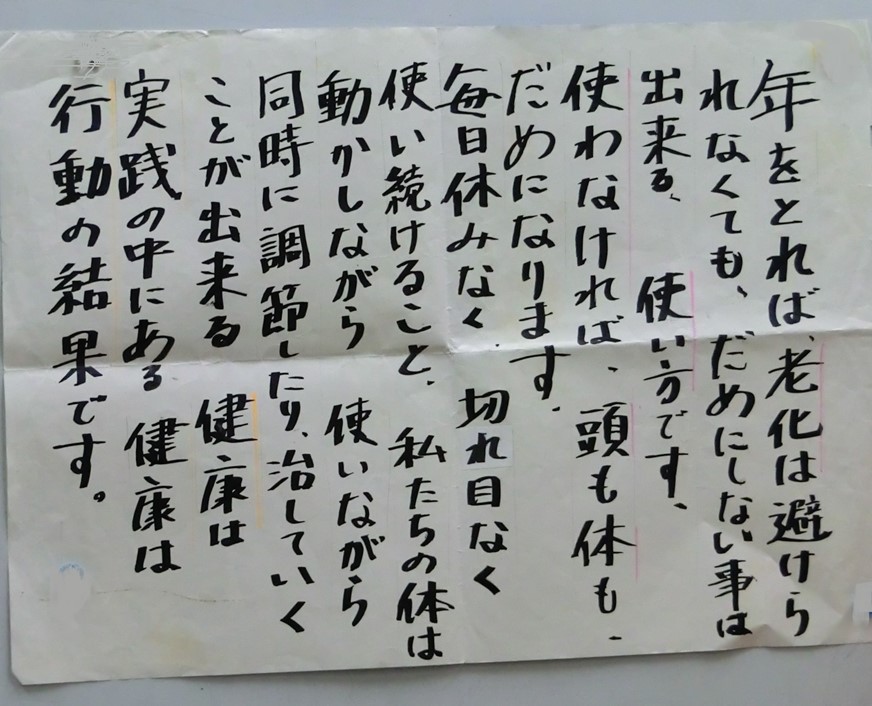 年をとれば、老化は避けら
れなくても、だめにしない事は
出来る、 使い方です、
使わなければ、頭も体も、
だめになります、
毎日休みなく、切れ目なく
使い続けること、私たちの体は
動かしながら 使いながら
同時に調節したり、治していく
ことが出来る 健康は
実践の中にある 健康は
行動の結果です。